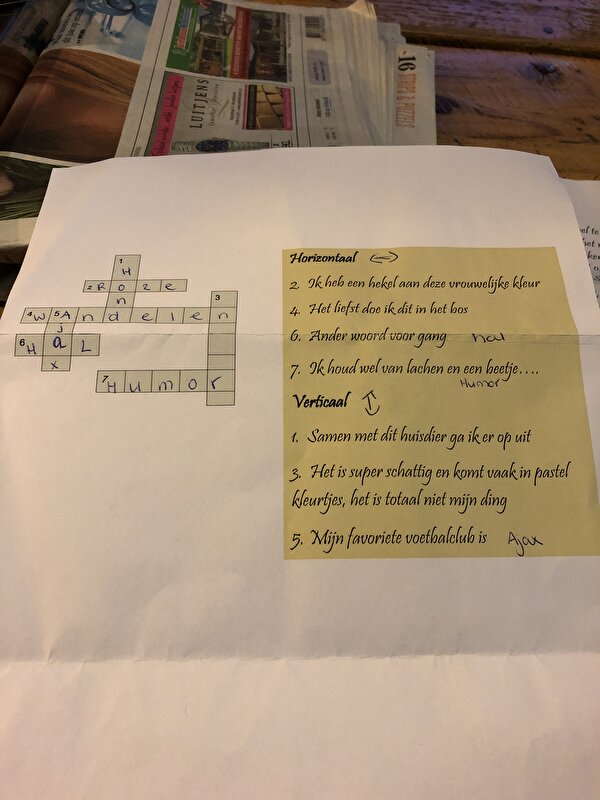 16 STRIPS & PUZZELS
LUITJENS
1
H
2 R o z e
3
n
4 W 5 A n d e l e n
j
6 H a L
x
7 H u m o r
Horizontaal
2. Ik heb een hekel aan deze vrouwelijke kleur
4. Het liefst doe ik dit in het bos
6. Ander woord voor gang hal
7. Ik houd wel van lachen en een beetje....
Humor
Verticaal
1. Samen met dit huisdier ga ik er op uit
3. Het is super schattig en komt vaak in pastel
kleurtjes, het is totaal niet mijn ding
5. Mijn favoriete voetbalclub is Ajax